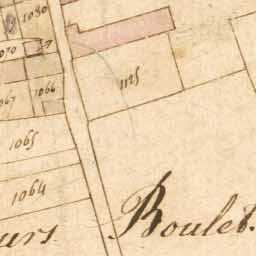 1080
1070
1125
1067
1066
1065
1064
urs
Boulet.